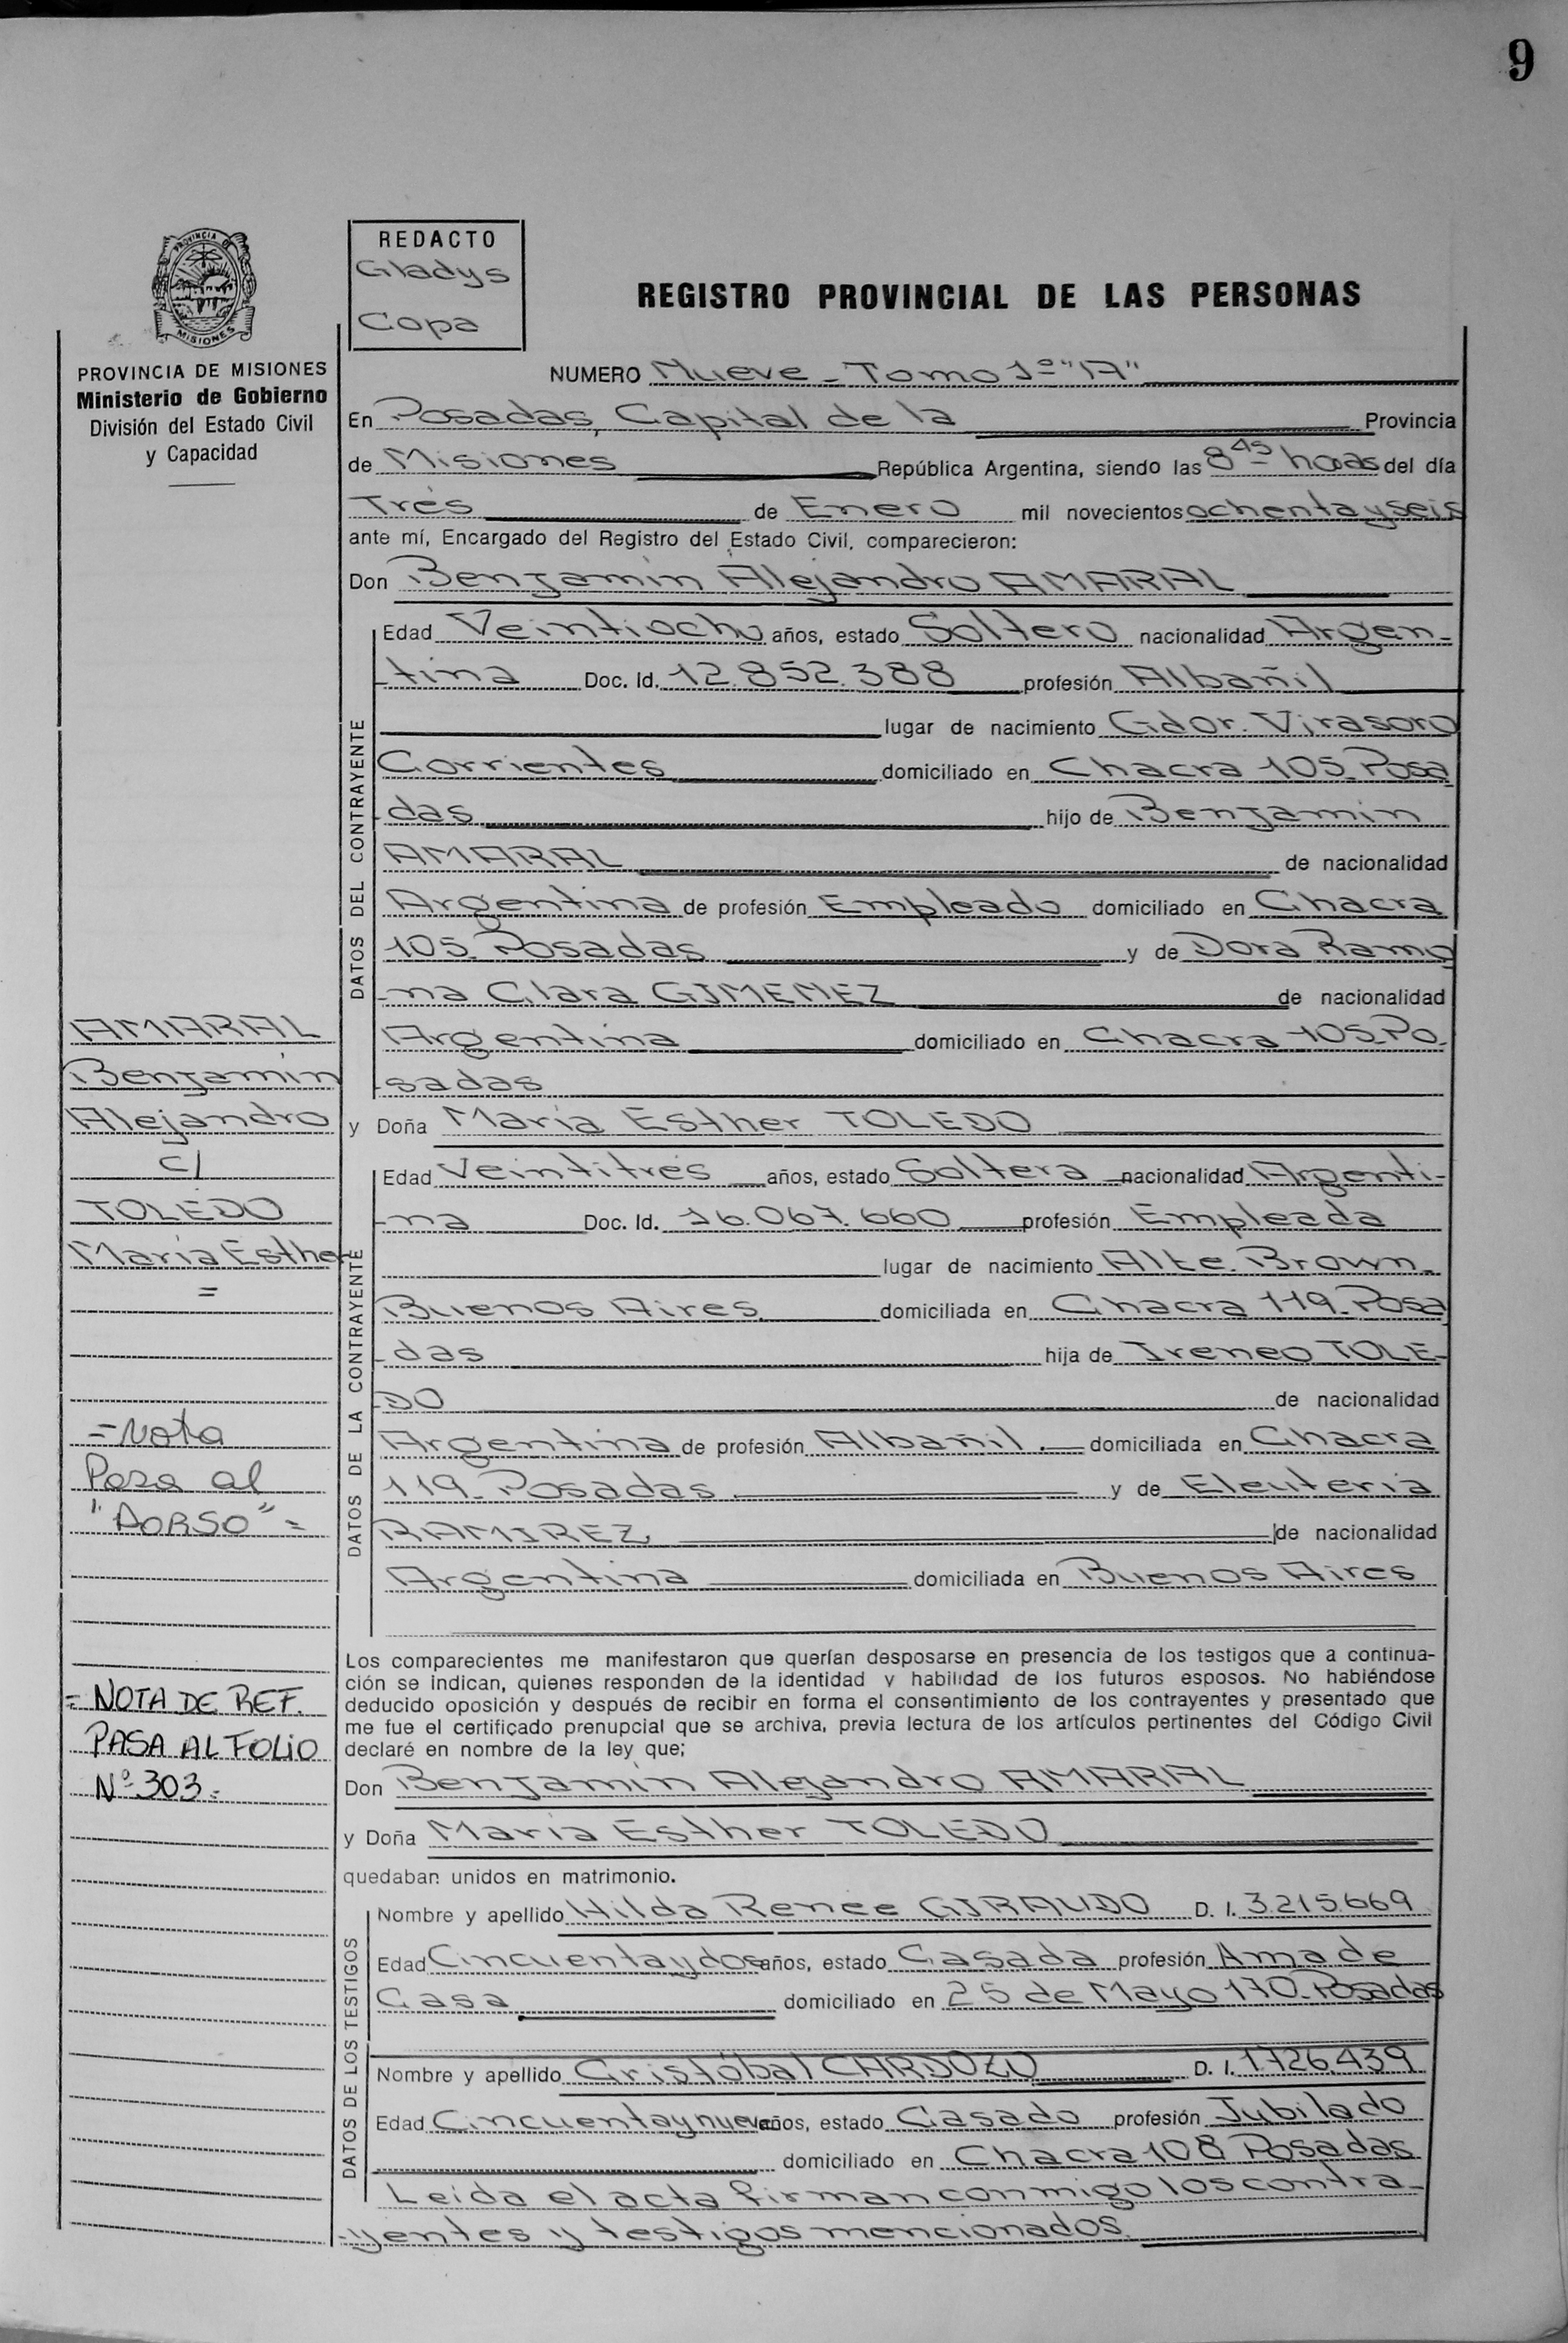 9
PROVINCIA DE
MISIONES
PROVINCIA DE MISIONES
Ministerio de Gobierno
División del Estado Civil
y Capacidad
REDACTO
Gladys
Copa
REGISTRO PROVINCIAL DE LAS PERSONAS
NUMERO Nueve - Tomo 1º "A"
En Posadas, Capital de la Provincia
de Misiones República Argentina, siendo las 8 45 horas del día
Tres de Enero mil novecientos ochenta y seis
ante mí, Encargado del Registro del Estado Civil, comparecieron:
Don Benjamín Alejandro AMARAL
DATOS DEL CONTRAYENTE
Edad Veintiocho años, estado Soltero nacionalidad Argen-
-tina Doc. Id. 12.852.388 profesión Albañil
lugar de nacimiento Gdor. Virasoro
Corrientes domiciliado en Chacra 105-Posa
-das hijo de Benjamín
AMARAL de nacionalidad
Argentina de profesión Empleado domiciliado en Chacra
105-Posadas y de Dora Ramo
-na Clara GIMENEZ de nacionalidad
Argentina domiciliado en Chacra 105-Po-
-sadas
y Doña María Esther TOLEDO
DATOS DE LA CONTRAYENTE
Edad Veintitrés años, estado Soltera nacionalidad Argenti-
-na Doc. Id. 16.067.660 profesión Empleada
lugar de nacimiento Alte. Brown-
Buenos Aires domiciliada en Chacra 119-Posa
-das hija de Ireneo TOLE-
-DO de nacionalidad
Argentina de profesión Albañil domiciliada en Chacra
119-Posadas y de Eleuteria
RAMIREZ de nacionalidad
Argentina domiciliada en Buenos Aires
Los comparecientes me manifestaron que querían desposarse en presencia de los testigos que a continua-
ción se indican, quienes responden de la identidad y habilidad de los futuros esposos. No habiéndose
deducido oposición y después de recibir en forma el consentimiento de los contrayentes y presentado que
me fue el certificado prenupcial que se archiva, previa lectura de los artículos pertinentes del Código Civil
declaré en nombre de la ley que;
Don Benjamín Alejandro AMARAL
y Doña María Esther TOLEDO
quedaban unidos en matrimonio.
DATOS DE LOS TESTIGOS
Nombre y apellido Hilda Renee GIRAUDO D. I. 3.215.669
Edad Cincuenta y dos años, estado Casada profesión Ama de
Casa domiciliado en 25 de Mayo 170-Posadas
Nombre y apellido Cristóbal CARDOZO D. I. 1.726.439
Edad Cincuenta y nueve años, estado Casado profesión Jubilado
domiciliado en Chacra 108 Posadas
Leída el acta firman conmigo los contra-
-yentes y testigos mencionados.
AMARAL
Benjamín
Alejandro
c/
TOLEDO
María Esther
=
=Nota
Pasa al
"DORSO"=
=NOTA DE REF.
PASA AL FOLIO
Nº 303=